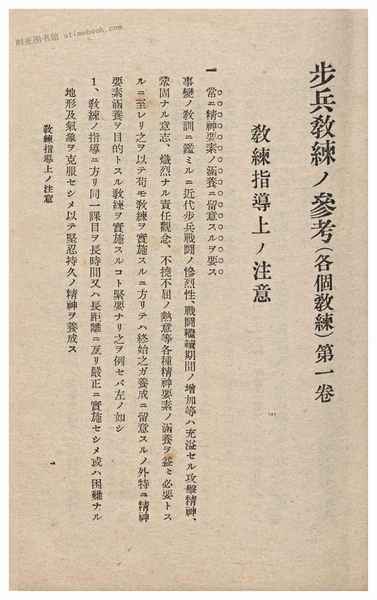 时光图书馆 stimebook.com
步兵教練ノ參考(各個教練)第一卷
教練指導上ノ注意
一 常ニ精神要素ノ涵養ニ留意スルヲ要ス
事變ノ教訓ニ鑑ミルニ近代步兵戰鬪ノ慘烈性、戰鬪繼續期間ノ增加等ハ充溢セル攻擊精神、
鞏固ナル意志、熾烈ナル責任觀念、不撓不屈ノ熱意等各種精神要素ノ涵養ヲ益〻必要トス
ルニ至レリ之ヲ以テ苟モ教練ヲ實施スルニ方リテハ終始之ガ養成ニ留意スルノ外特ニ精神
要素涵養ヲ目的トスル教練ヲ實施スルコト緊要ナリ之ヲ例セバ左ノ如シ
1、教練ノ指導ニ方リ同一課目ヲ長時間又ハ長距離ニ亙リ嚴正ニ實施セシメ或ハ困難ナル
地形及氣象ヲ克服セシメ以テ堅忍持久ノ精神ヲ養成ス
教練指導上ノ注意
一